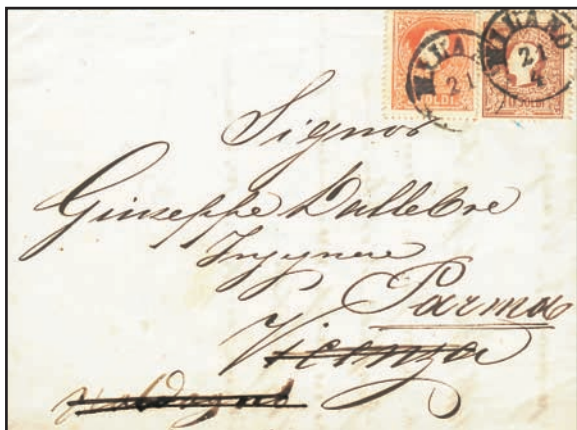 MILANO 21
MILANO 21 4
SOLDI
10 SOLDI
Signor
Giuseppe Dallebre
Ingegnere
Parma
Vicenza